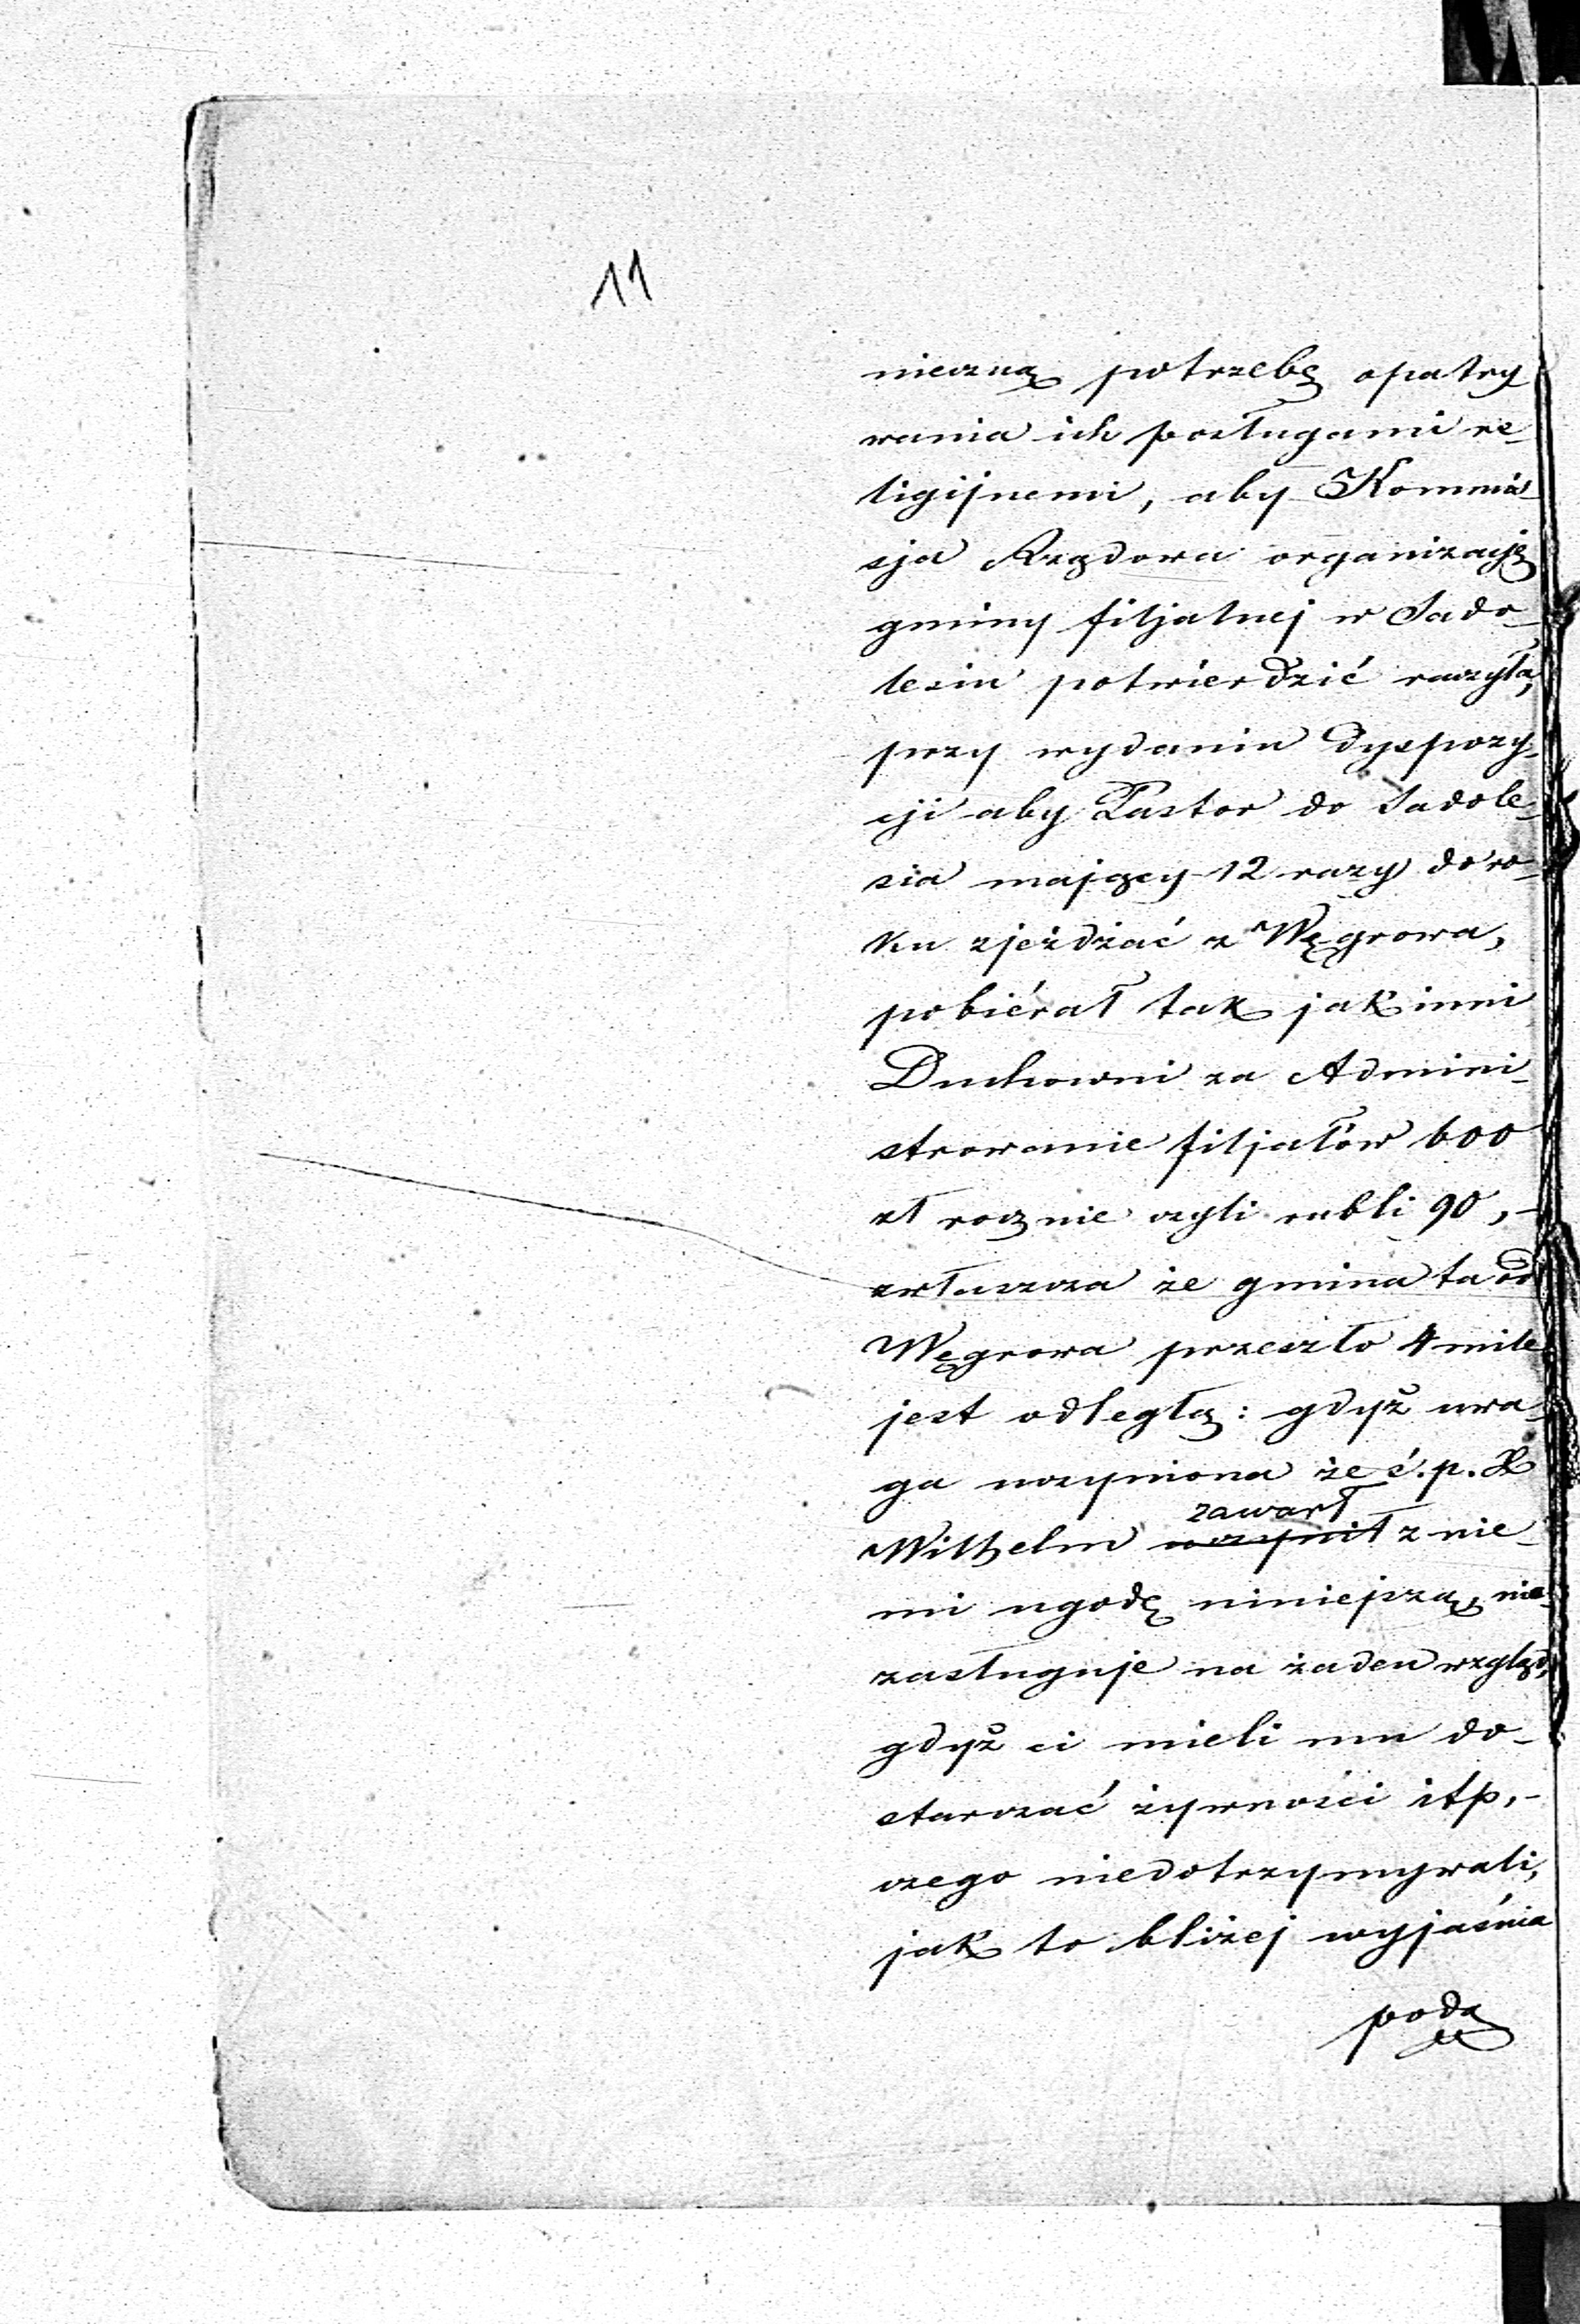 11
nieczną potrzebę opatry
wania ich posługami re-
ligijnemi, aby Kommis-
sja Rządowa organizacyę
gminy filjalnej w Sado-
lesiu potwierdzić raczyła,
przy wydaniu dyspozy-
cji aby Pastor do Sadole-
sia mający 12 razy do ro-
ku zjeżdżać z Węgrowa,
pobiérał tak jak inni
Duchowni za Admini-
strowanie filjałów 600
zł rocznie czyli rubli 90,-
zwłaszcza że gmina ta od
Węgrowa przeszło 4 mile
jest odległą: gdyż uwa-
ga uczyniona że ś. p. X
zawarł
Wilhelm uczynił z nie-
mi ugodę niniejszą, nie-
zasługuje na żaden wzgląd,
gdyż ci mieli mu do-
starczać żywności itp,-
czego niedotrzymywali,
jak to bliżej wyjaśnia
podą